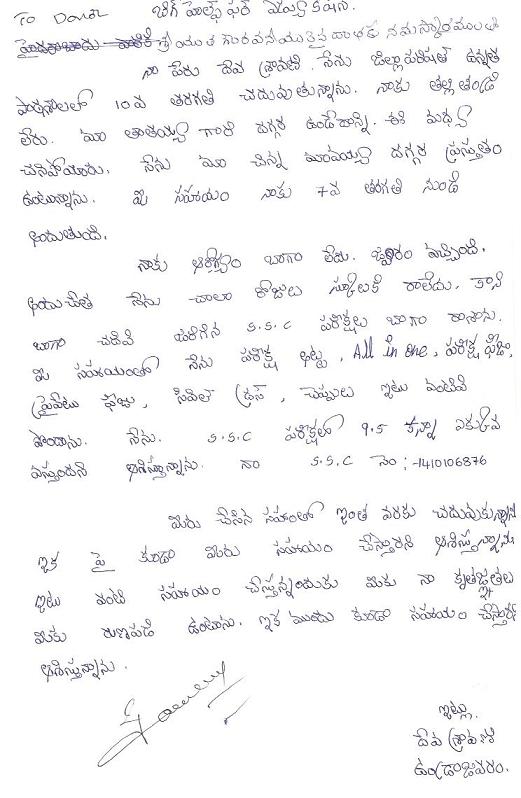 To Donor బిగ్ హెల్ప్ ఫర్ ఎడ్యుకేషన్.
హైదరాబాదు వారికి శ్రీయుత గౌరవనీయులైన దాతకు నమస్కారములు
నా పేరు దేవ శ్రావణి. నేను జిల్లాపరిషత్ ఉన్నత
పాఠశాలలో 10వ తరగతి చదువుతున్నాను. నాకు తల్లి తండ్రి
లేరు. మా తాతయ్య గారి దగ్గర ఉండేదాన్ని. ఈ మధ్య
చనిపోయారు. నేను మా చిన్న మామయ్య దగ్గర ప్రస్తుతం
ఉంటున్నాను. మీ సహాయం నాకు 7వ తరగతి నుండి
అందుతుంది.
నాకు ఆరోగ్యం బాగా లేదు. జ్వరం వచ్చింది.
అందుచేత నేను చాలా రోజులు స్కూలుకి రాలేదు. కాని
బాగా చదివి జరిగిన S.S.C పరీక్షలు బాగా రాశాను.
మీ సహాయంతో నేను పరీక్ష అట్ట, All in one, పరీక్ష ఫీజు,
ప్రైవేటు ఫీజు, సివిల్ డ్రస్, చెప్పులు ఇటు వంటివి
పొందాను. నేను. S.S.C పరీక్షలో 9.5 కన్నా ఎక్కువ
వస్తుందని ఆశిస్తున్నాను. నా S.S.C నెం:-1410106876
మీరు చేసిన సహాంతో ఇంత వరకు చదువుకున్నాను
ఇక పై కూడా మీరు సహాయం చేస్తారని ఆశిస్తున్నాను
ఇటు వంటి సహాయం చేస్తున్నందుకు మీకు నా కృతజ్ఞతలు
మీకు రుణపడి ఉంటాను. ఇక ముందు కూడా సహాయం చేస్తారని
ఆశిస్తున్నాను.
ఇట్లు,
దేవ శ్రావణి
ఉండ్రాజవరం.